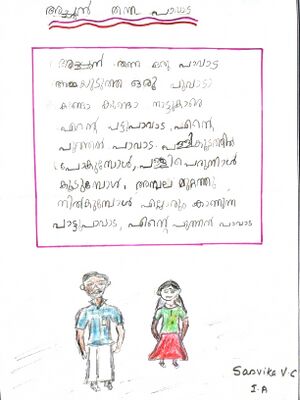 അച്ഛൻ തന്ന പാവാട
അച്ഛൻ തന്ന ഒരു പാവാട
ഒരു പാവാട
കണ്ടോ കണ്ടോ നാട്ടുകാരെ
എന്റെ പട്ടുപാവാട, എന്റെ
പുന്നാര പാവാട പള്ളിക്കൂടത്തിൽ
പോകുമ്പോൾ, പള്ളിപെരുന്നാൾ
കൂടുമ്പോൾ, അമ്പല മുറ്റത്തു
നിൽകുമ്പോൾ എല്ലാരും കാണുന്ന
പാട്ടുപാവാട, എന്റെ പാവാട
Sanvika V.C
I.A